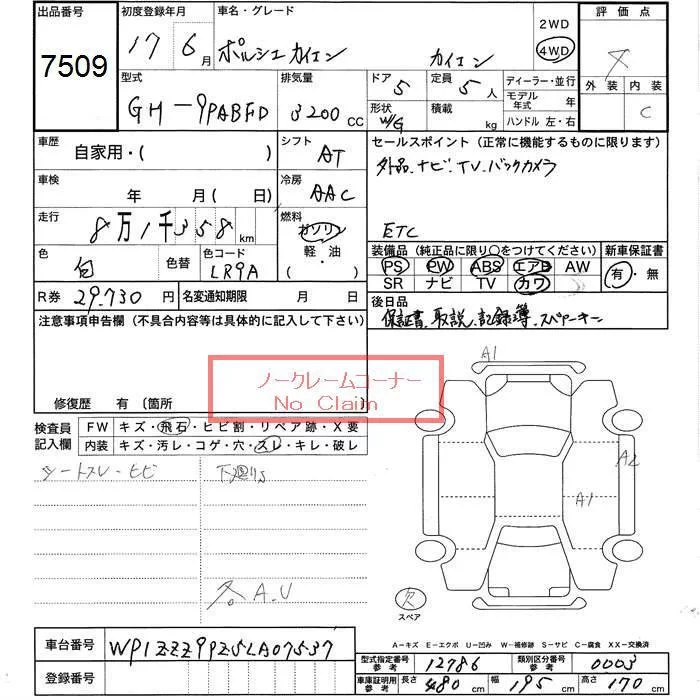 出品番号 7509
初度登録年月 17 6月
車名・グレード ポルシェカイエン カイエン
2WD 4WD
評価点
外装 内装 C
型式 GH-9PABFD
排気量 3200 CC
ドア 5
形状 W/G
定員 5人
積載 kg
ディーラー・並行
モデル年式 年
ハンドル 左・右
車歴 自家用・( )
シフト AT
セールスポイント (正常に機能するものに限ります)
外品.ナビ.TV.バックカメラ
ETC
車検 年 月( 日)
冷房 AAC
走行 8万1千358km
燃料 ガソリン 軽・油 ( )
色 白 色替
色コード LR9A
装備品 (純正品に限り○をつけてください)
PS PW ABS エアB AW
SR ナビ TV カワ
新車保証書 有・無
R券 29.730 円
名変通知期限 月 日
後日品
保証書.取説.記録簿.スペアーキー
注意事項申告欄 (不具合内容等は具体的に記入して下さい)
ノークレームコーナー
No Claim
修復歴 有(箇所 )
検査員記入欄
FW キズ・飛石・ヒビ割・リペア跡・X要
内装 キズ・汚レ・コゲ・穴・スレ・キレ・破レ
シートスレ・ヒビ
下廻りS
A.U
A1
A2
A1
欠
スペア
A−キズ E−エクボ U−凹み W−補修跡 S−サビ C−腐食 XX−交換済
車台番号 WP1ZZZ9PZ5LA07537
登録番号
型式指定番号 参考 12786
類別区分番号 参考 0003
車庫証明用 参考 長さ 480 cm 幅 195 cm 高さ 170 cm